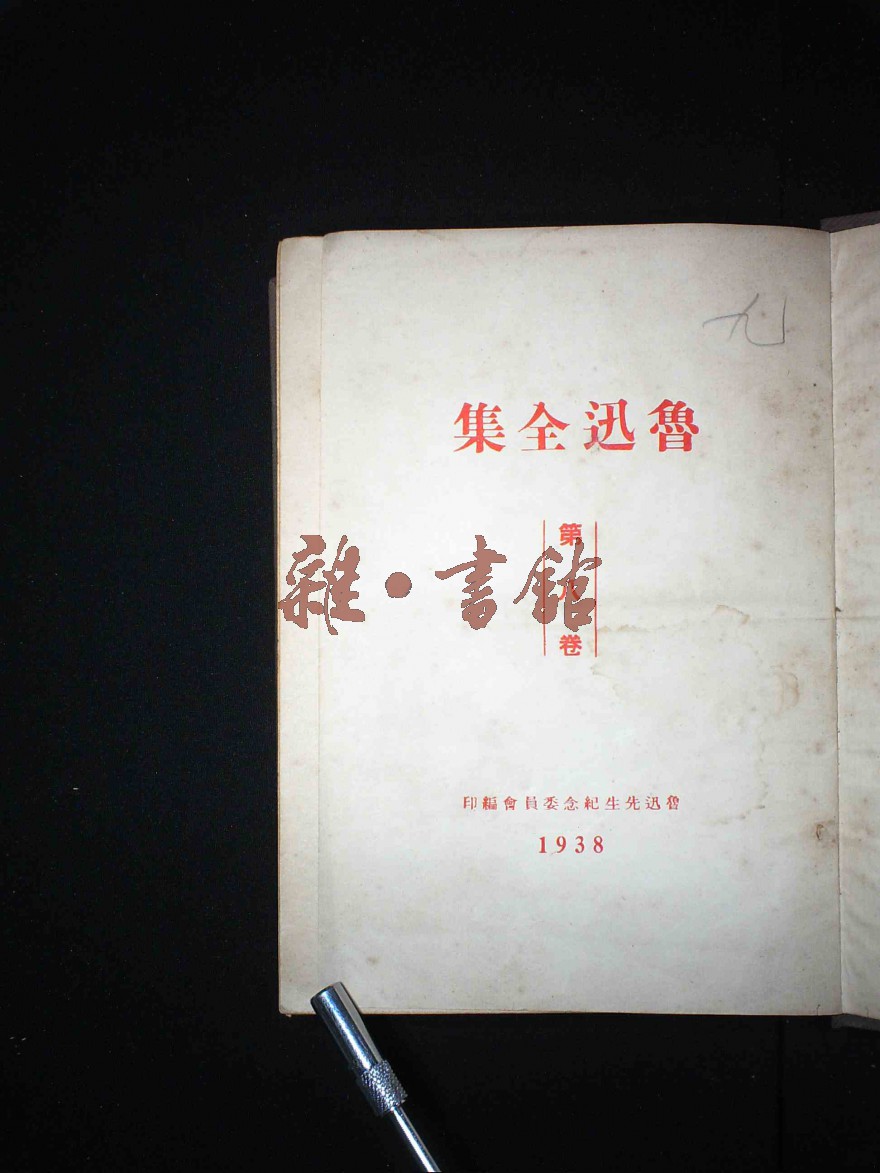 九
魯迅全集
第八卷
雜·書館
魯迅先生紀念委員會編印
1938